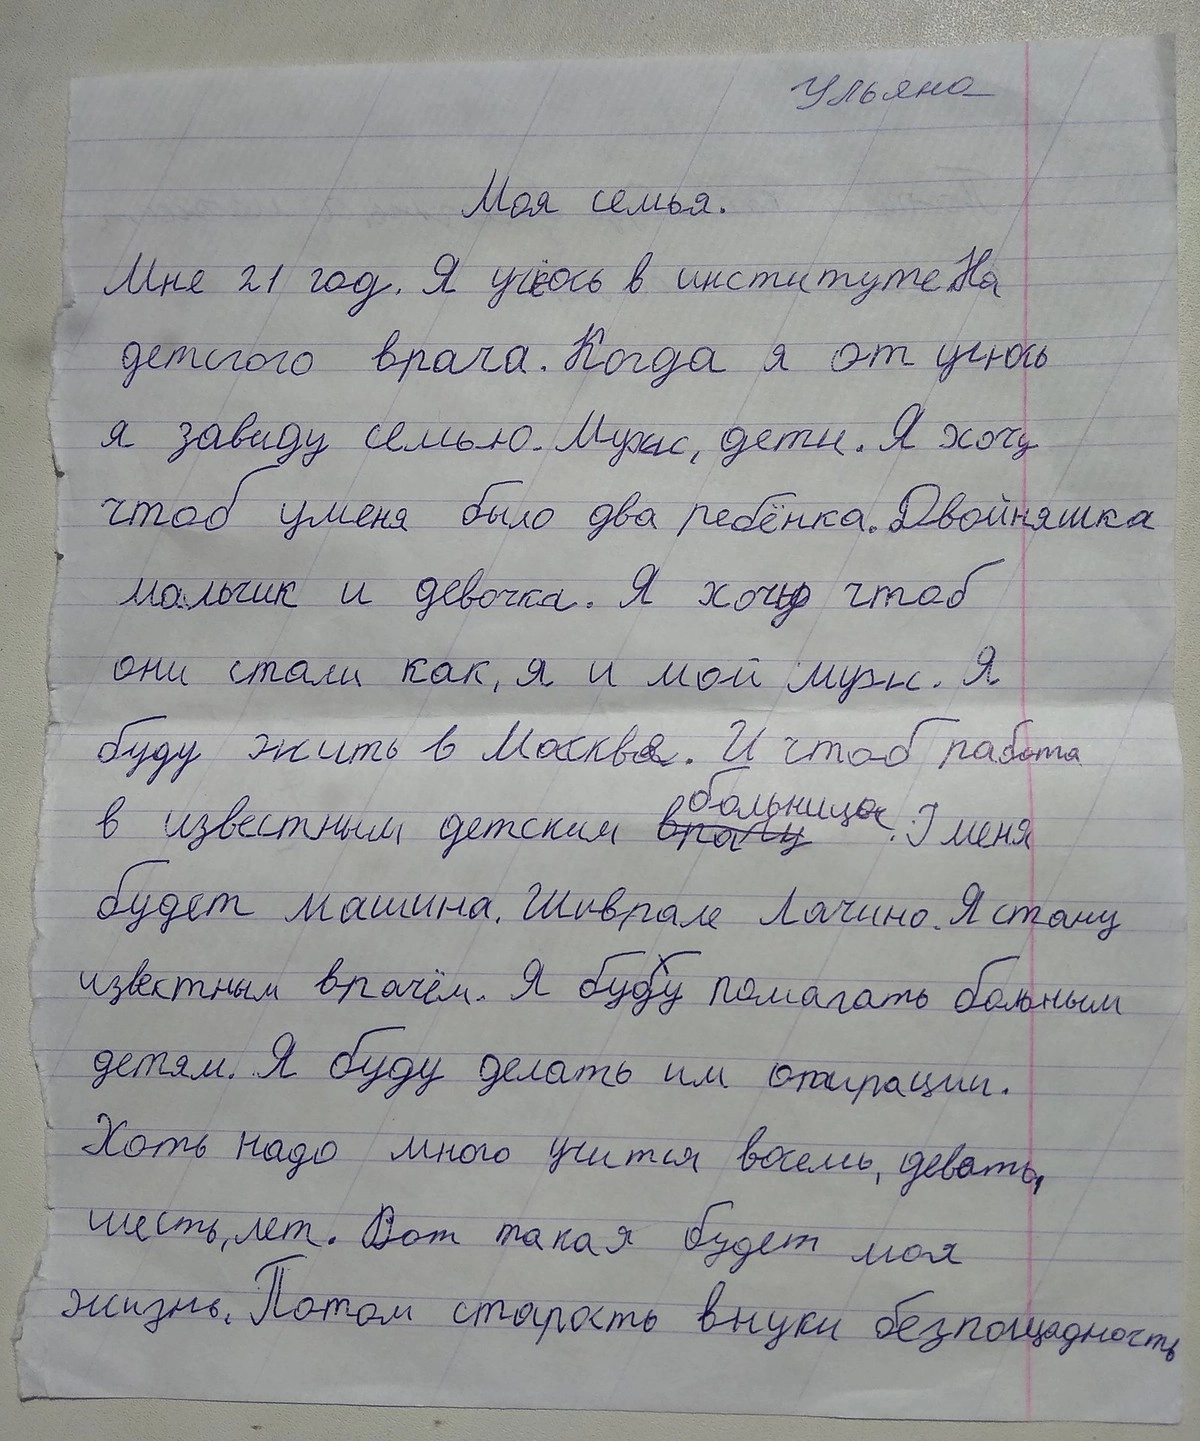 Ульяна
Моя семья.
Мне 21 год. Я учёсь в институте На
детского врача. Когда я от учюсь
я завиду семью. Муж, дети. Я хочу
чтоб уменя было два ребёнка. Двойняшка
мальчик и девочка. Я хочу чтоб
они стали как, я и мой муж. Я
буду жить в Москва. И чтоб работа
в известным детским больница. Уменя
врачу
будет машина. Шиврале Лачино. Я стану
известным врачём. Я буду помагать больным
детям. Я буду делать им отирации.
Хоть надо много учится восемь, девать,
шесть, лет. Вот такая будет моя
жизнь. Потом старость внуки безпощадность